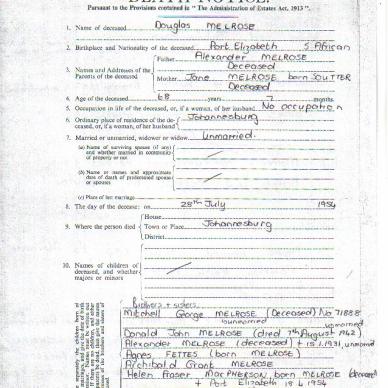 DEATH NOTICE.
Pursuant to the Provisions contained in "The Administration of Estates Act, 1913".
1. Name of deceased Douglas MELROSE
2. Birthplace and Nationality of the deceased Port Elizabeth S. African
3. Names and Addresses of the Parents of the deceased
Father Alexander MELROSE
Deceased
Mother Jane MELROSE born SOUTTER
Deceased
4. Age of the deceased 68 years 7 months
5. Occupation in life of the deceased, or, if a woman, of her husband No occupation
6. Ordinary place of residence of the deceased, or, if a woman, of her husband Johannesburg
7. Married or unmarried, widower or widow Unmarried.
(a) Name of surviving spouse (if any) and whether married in community of property or not
(b) Name or names and approximate date of death of predeceased spouse or spouses
(c) Place of last marriage
8. The day of the decease: on 28th July 1954
9. Where the person died
House
Town or Place Johannesburg
District
10. Names of children of deceased, and whether majors or minors
Brothers + sisters
Mitchell George MELROSE (Deceased) No 71888
unmarried
Donald John MELROSE (died 7th August 1942) unmarried
Alexander MELROSE (deceased) + 15.1.1931, unmarried
Agnes FETTES (born MELROSE)
Archibald Grant MELROSE
Helen Fraser MACPHERSON, born MELROSE (deceased)
+ Port Elizabeth 19.4.1954